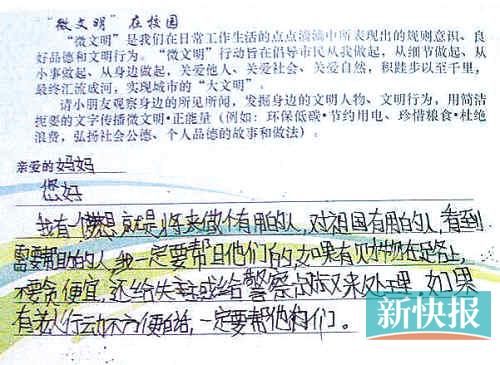 “微文明”在校园
“微文明”是我们在日常工作生活的点点滴滴中所表现出的规则意识、良
好品德和文明行为。“微文明”行动旨在倡导市民从我做起，从细节做起、从
小事做起、从身边做起，关爱他人、关爱社会、关爱自然，积跬步以至千里，
最终汇流成河，实现城市的“大文明”。
请小朋友观察身边的所见所闻，发掘身边的文明人物、文明行为，用简洁
扼要的文字传播微文明·正能量（例如：环保低碳·节约用电、珍惜粮食·杜绝
浪费，弘扬社会公德、个人品德的故事和做法）：
亲爱的妈妈
您好
我有个梦想就是将来做个有用的人，对祖国有用的人，看到
需要帮助的人，我一定要帮助他们的，如果有财物在路上，
不要贪便宜，还给失主或给警察叔叔来处理，如果
有老人行动不方便的话，一定要帮他们。
新快报